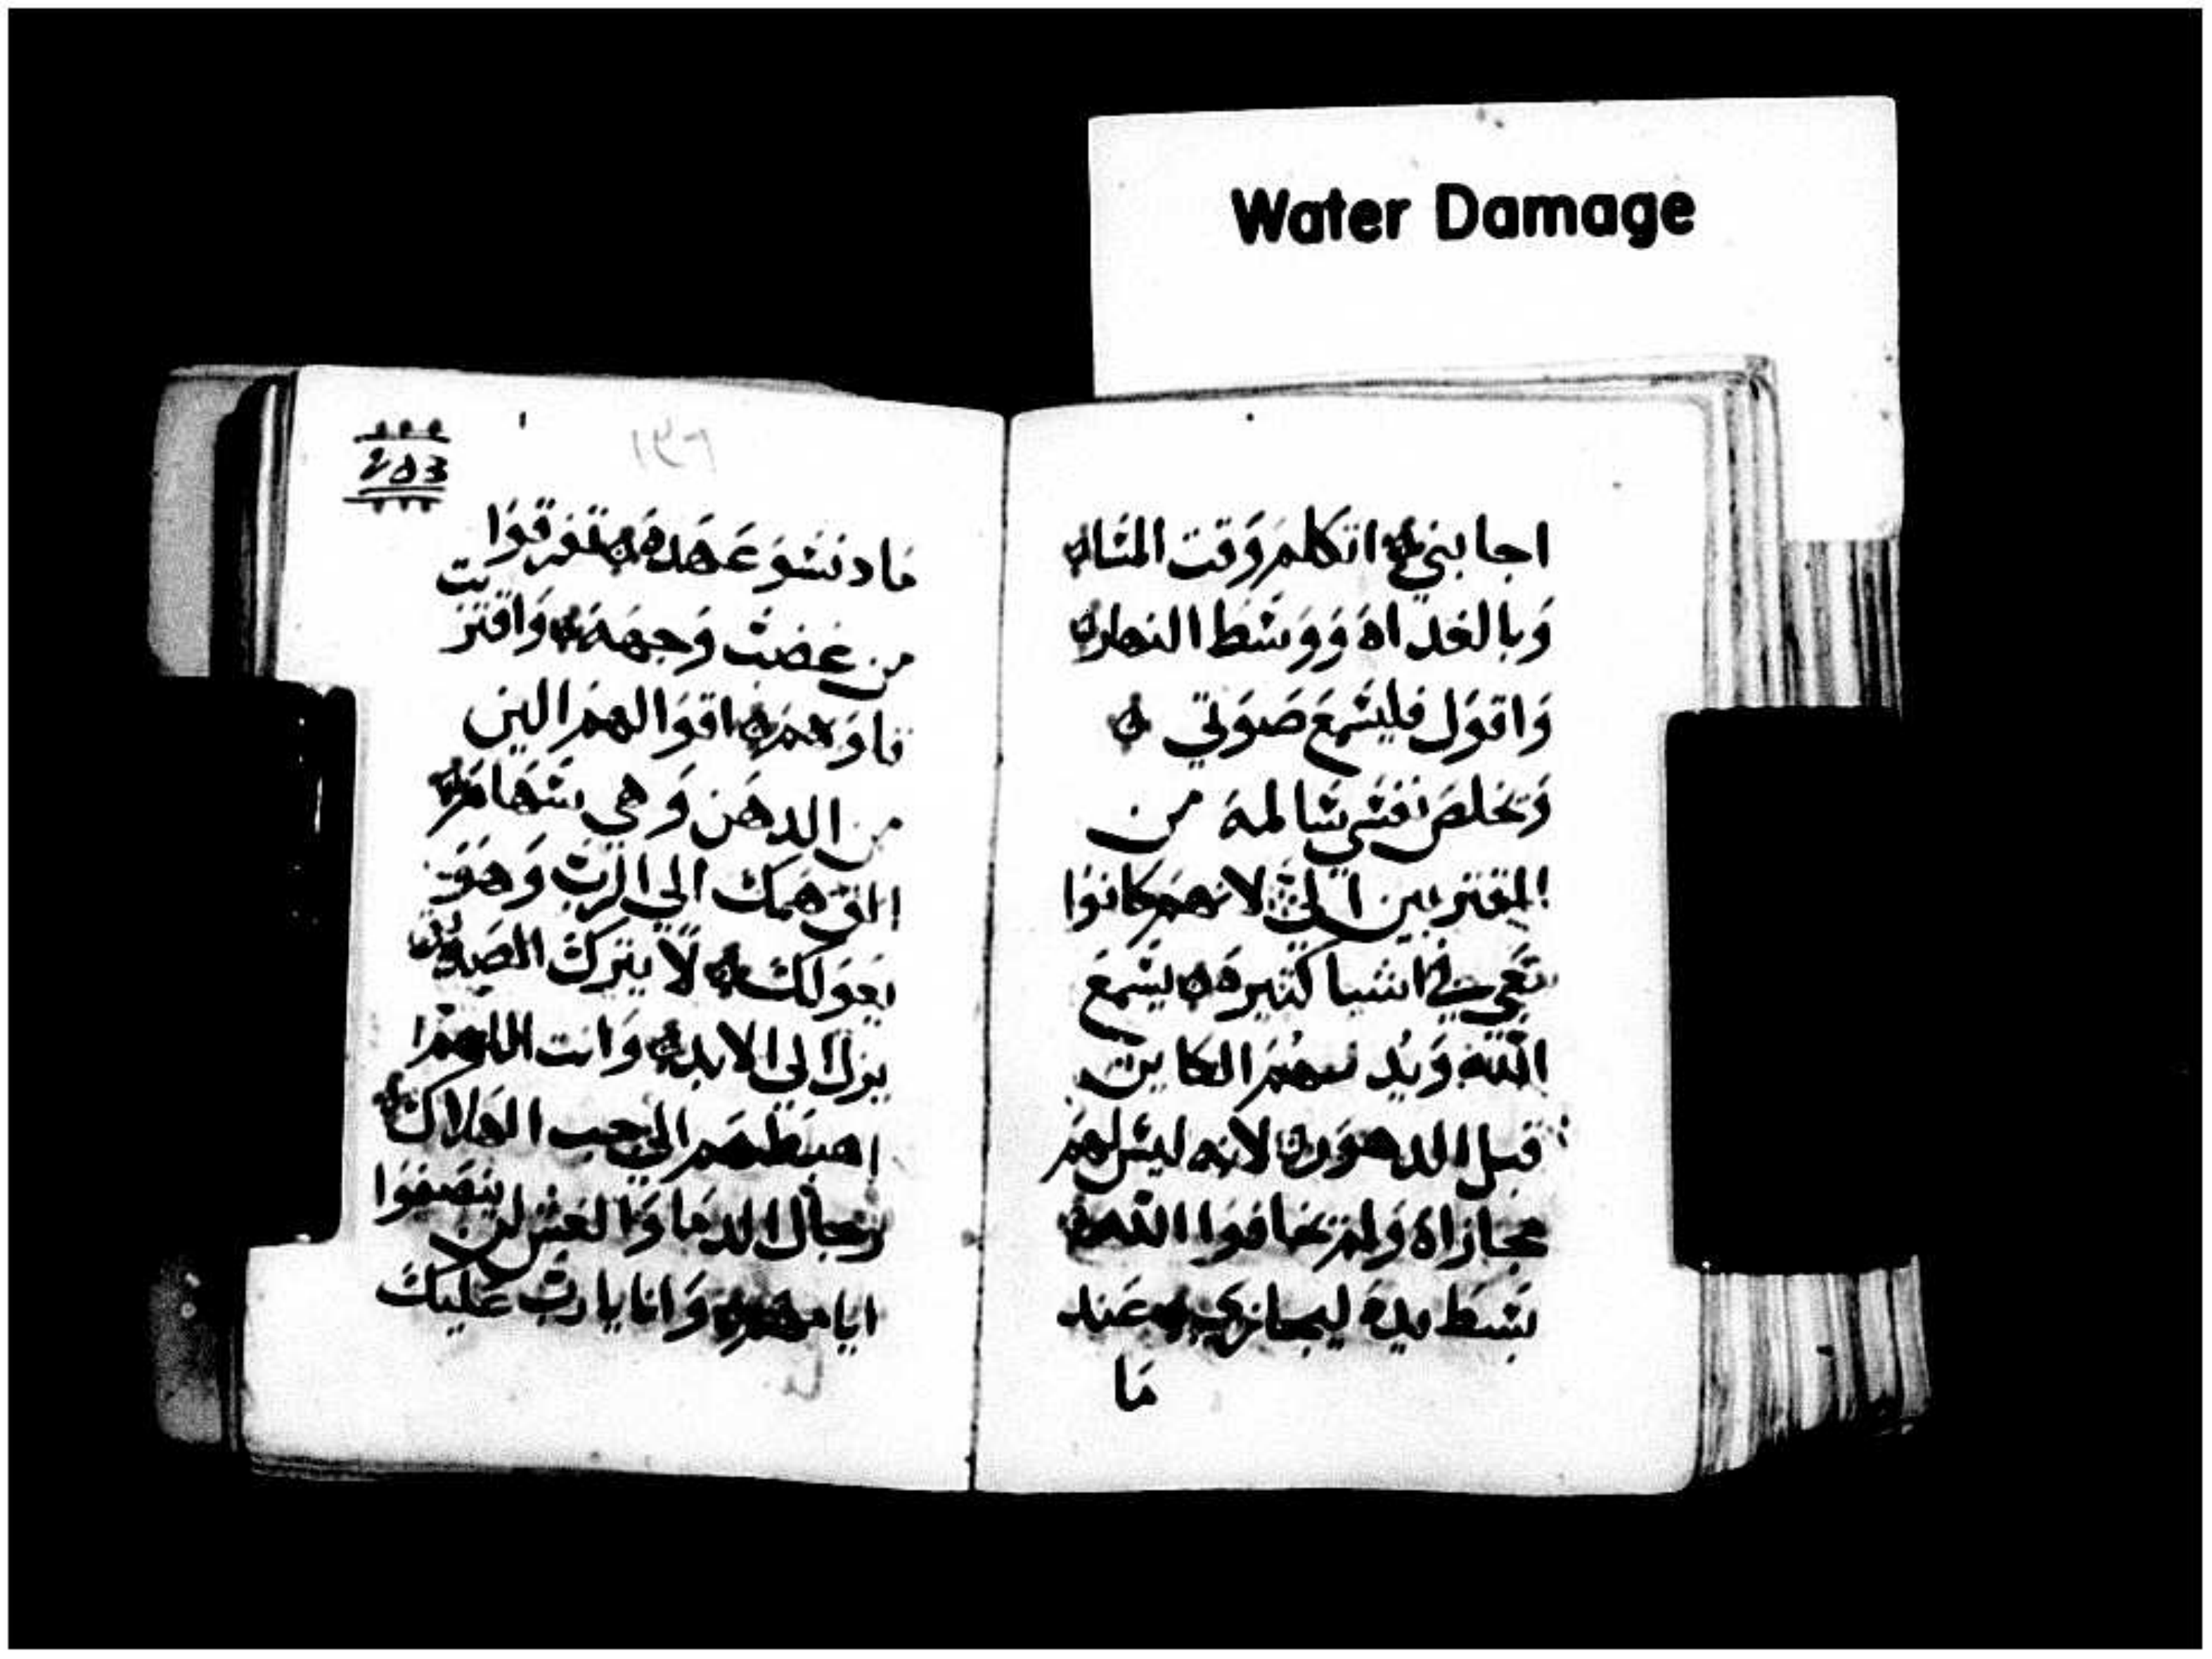 Water Damage
اجابني اتكلم وقت المسا
وبالغداه ووسط النهار
واقول فليسمع صوتي
وتخلص نفسي سالمة من
المقتربين الي لانهم كانوا
معي في اشيا كتيره يسمع
الله ويد لهم الكاين
قبل الدهور لانه ليس لهم
مجازاه ولم يخافوا الله
بسط يده ليجازي عند
ما
٢٩١
مادنسو عهده تفرقوا
من غضب وجهه واقتربت
قلوبهم اقوالهم الين
من الدهن وهي سهام
الق همك الي الرب وهو
يعولك لا يترك الصديق
يزل الي الابد وانت اللهم
اهبطهم الي جب الهلاك
رجال الدما والغش لن ينصفوا
ايامهم وانا يارب عليك